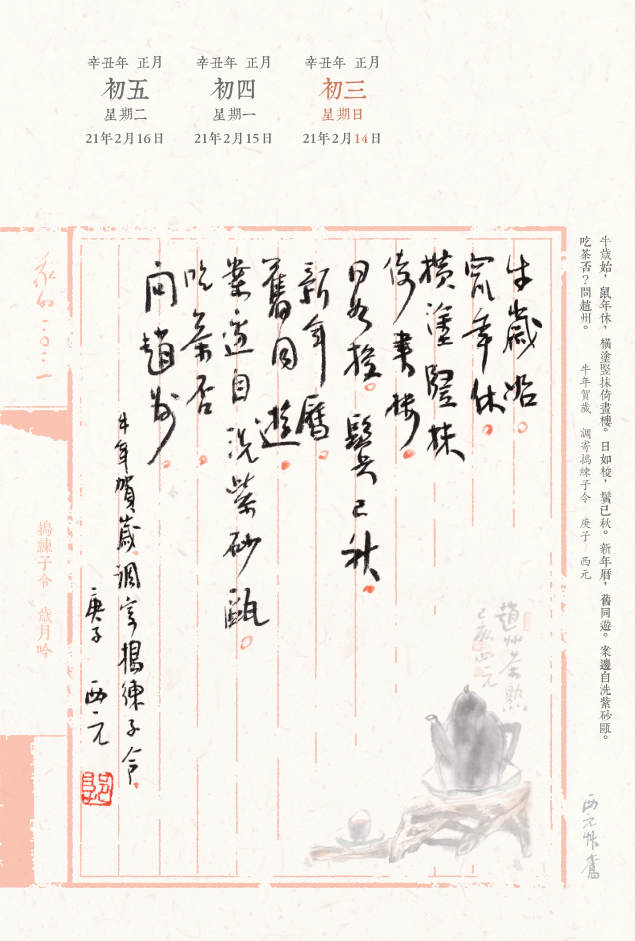 辛丑年 正月
初三
星期日
21年2月14日
辛丑年 正月
初四
星期一
21年2月15日
辛丑年 正月
初五
星期二
21年2月16日
牛歲始，鼠年休，橫塗竪抹倚畫樓。日如梭，鬓已秋。新年曆，舊同遊。案邊自洗紫砂甌。
吃茶否？問趙州。 牛年賀歲 調寄搗練子令 庚子 西元
牛歲始。
鼠年休。
橫塗竪抹
倚畫樓。
日如梭。鬓已秋。
新年曆。
舊同遊。
案邊自洗紫砂甌。
吃茶否。
問趙州。
牛年賀歲調寄搗練子令
庚子 西元
趙州茶熟
己亥西元
搗練子令 歲月吟